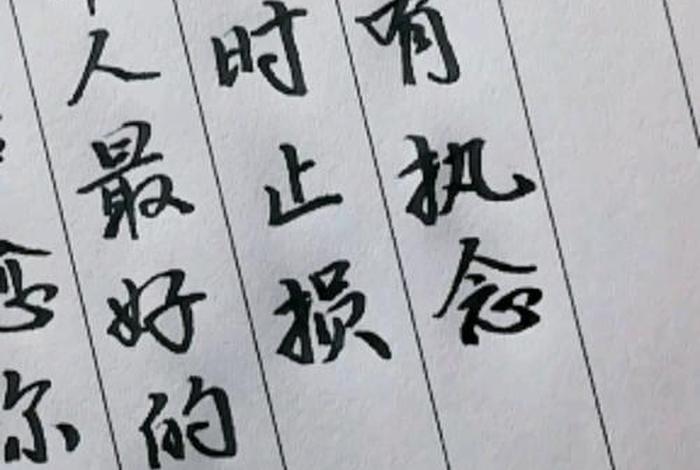 有执念
时止损
人最好的
你